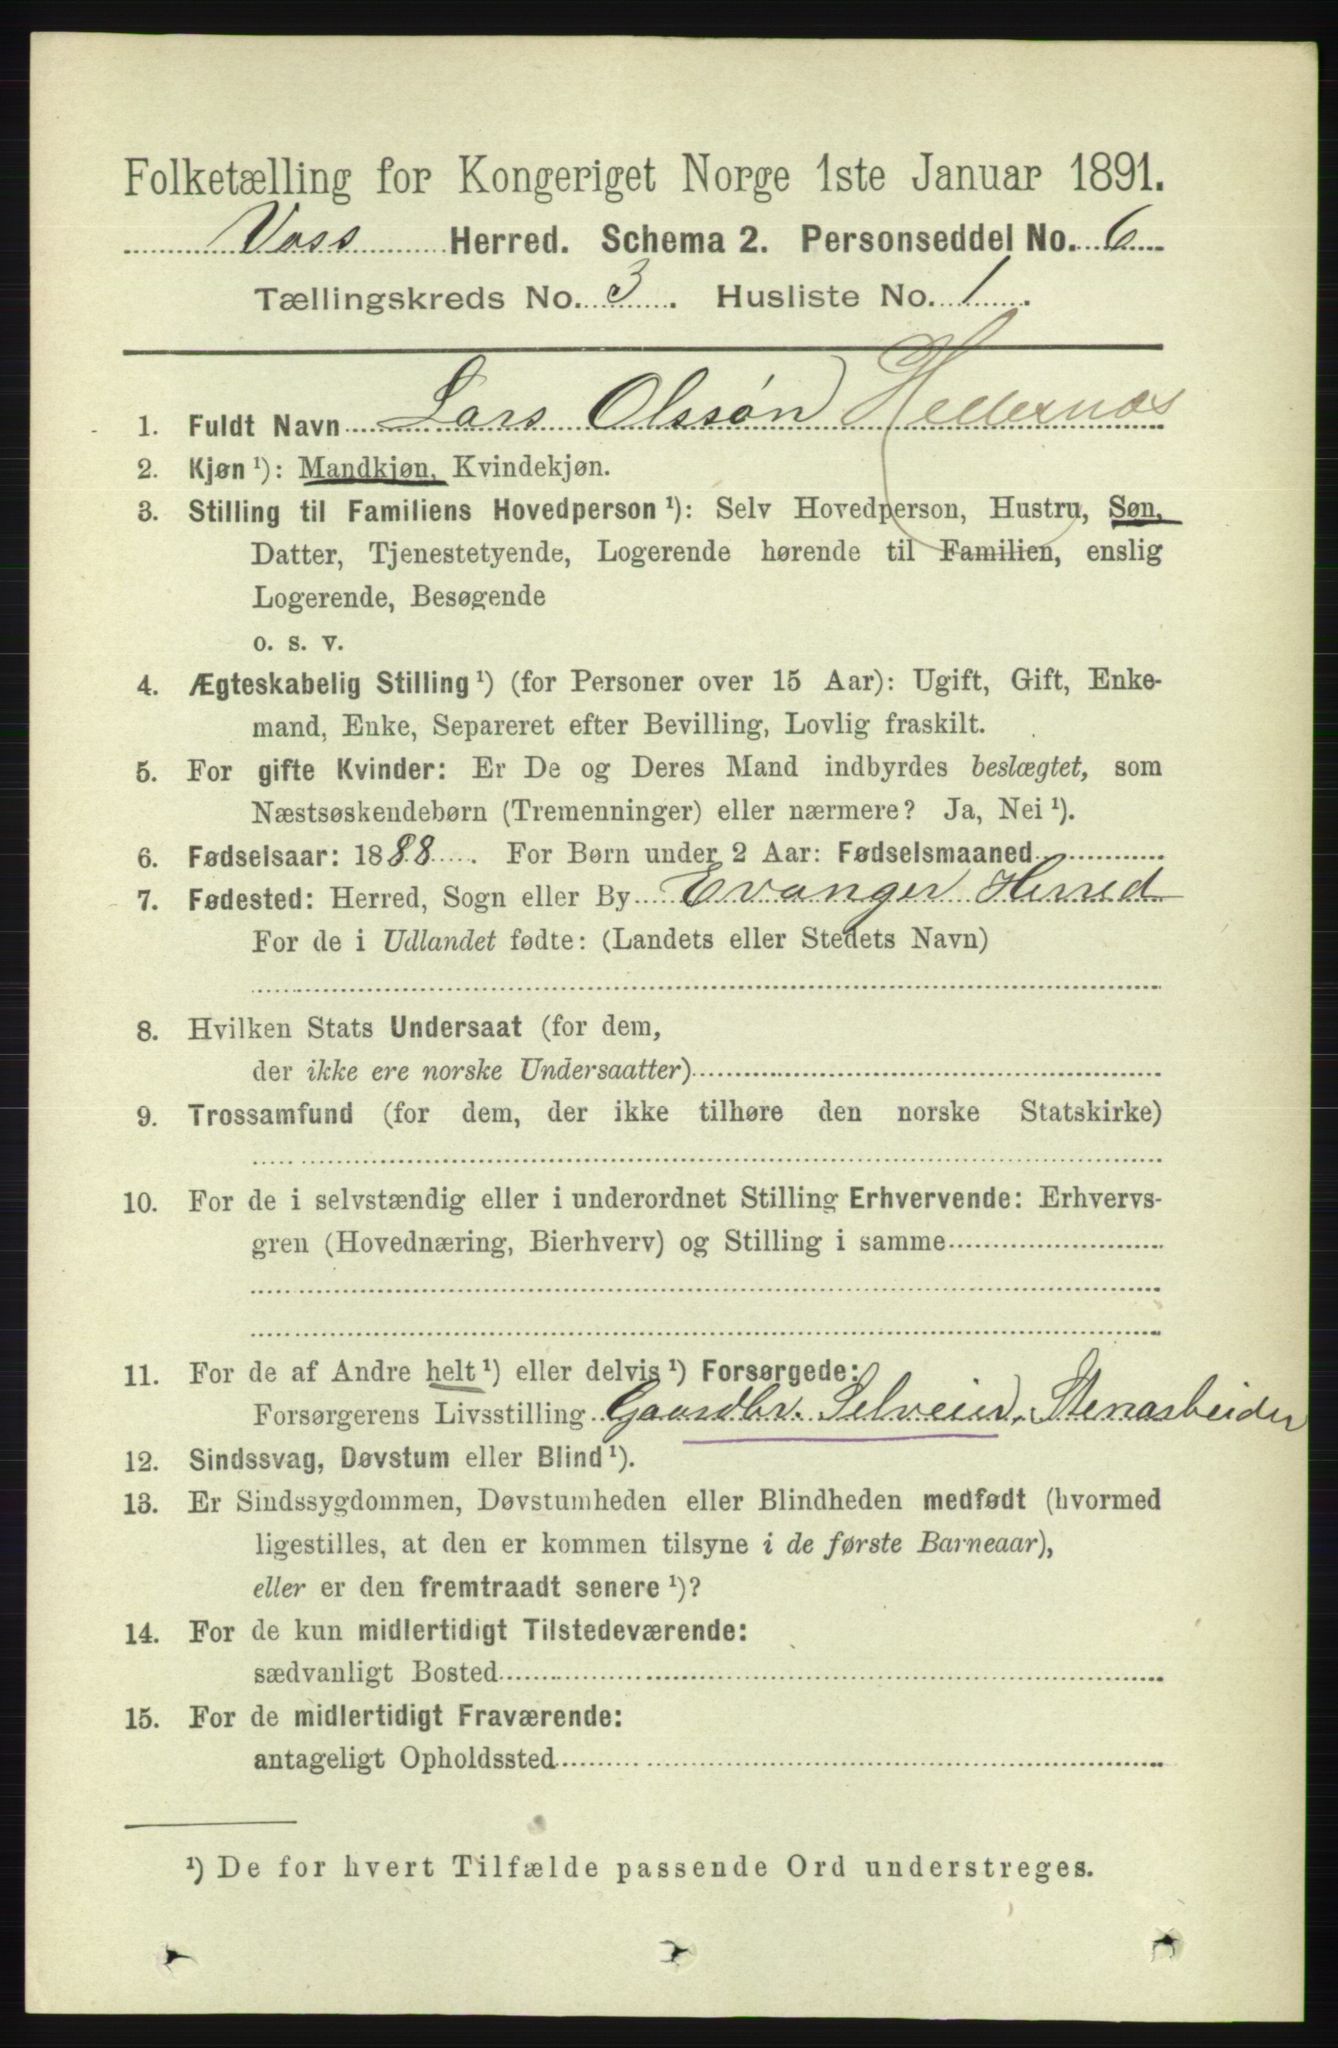 Folketælling for Kongeriget Norge 1ste Januar 1891.
Voss Herred. Schema 2. Personseddel No. 6
Tællingskreds No. 3. Husliste No. 1.
1. Fuldt Navn Lars Olssøn Hellernæs
2. Kjøn ¹): Mandkjøn, Kvindekjøn.
3. Stilling til Familiens Hovedperson ¹): Selv Hovedperson, Hustru, Søn,
Datter, Tjenestetyende, Logerende hørende til Familien, enslig
Logerende, Besøgende
o. s. v.
4. Ægteskabelig Stilling ¹) (for Personer over 15 Aar): Ugift, Gift, Enke-
mand, Enke, Separeret efter Bevilling, Lovlig fraskilt.
5. For gifte Kvinder: Er De og Deres Mand indbyrdes beslægtet, som
Næstsøskendebørn (Tremenninger) eller nærmere? Ja, Nei ¹).
6. Fødselsaar: 1888. For Børn under 2 Aar: Fødselsmaaned
7. Fødested: Herred, Sogn eller By Evanger Herred
For de i Udlandet fødte: (Landets eller Stedets Navn)
8. Hvilken Stats Undersaat (for dem,
der ikke ere norske Undersaatter)
9. Trossamfund (for dem, der ikke tilhøre den norske Statskirke)
10. For de i selvstændig eller i underordnet Stilling Erhvervende: Erhvervs-
gren (Hovednæring, Bierhverv) og Stilling i samme
11. For de af Andre helt ¹) eller delvis ¹) Forsørgede:
Forsørgerens Livsstilling Gaardbr. Selveier, Stenarbeider
12. Sindssvag, Døvstum eller Blind ¹).
13. Er Sindssygdommen, Døvstumheden eller Blindheden medfødt (hvormed
ligestilles, at den er kommen tilsyne i de første Barneaar),
eller er den fremtraadt senere ¹)?
14. For de kun midlertidigt Tilstedeværende:
sædvanligt Bosted
15. For de midlertidigt Fraværende:
antageligt Opholdssted
¹) De for hvert Tilfælde passende Ord understreges.